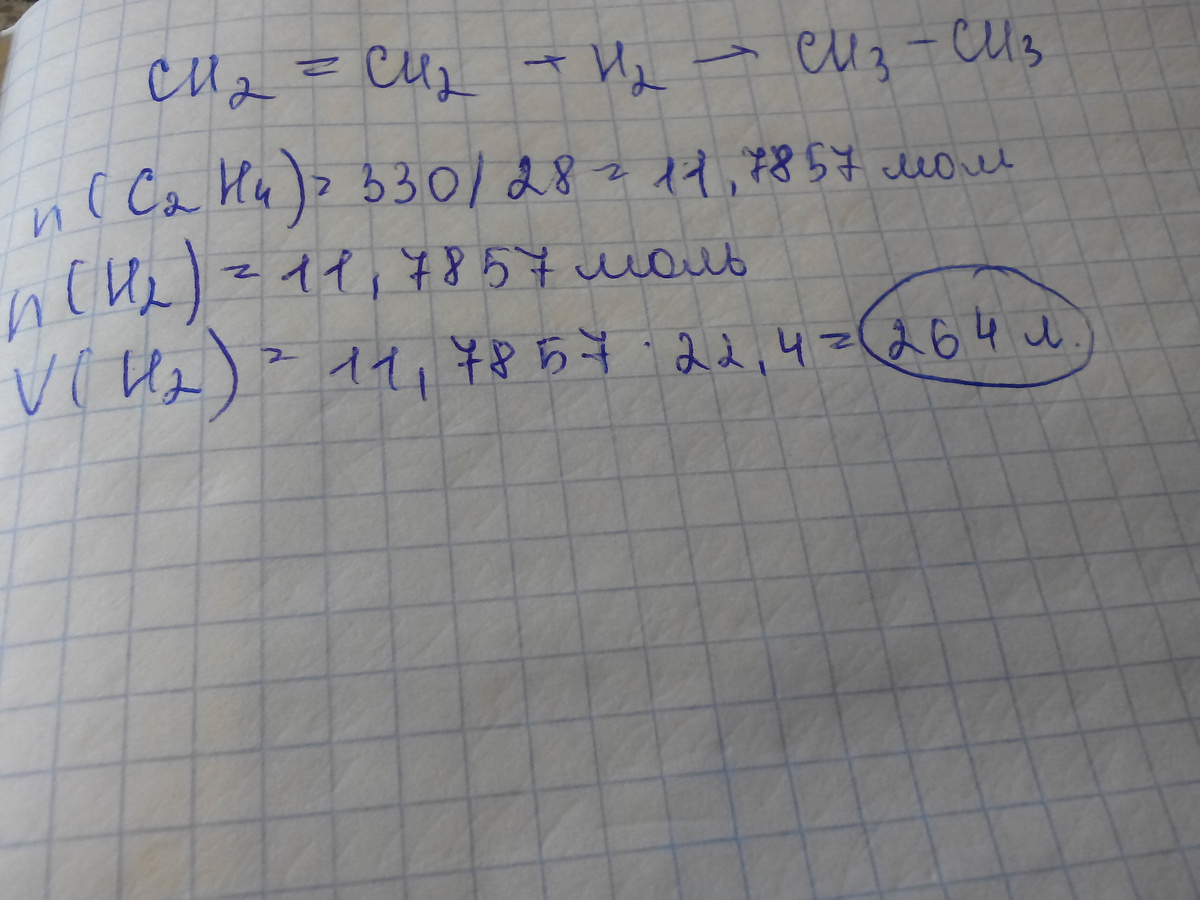 CH2 = CH2 + H2 → CH3 - CH3
n(C2H4) = 330/28 = 11,7857 мол
n(H2) = 11,7857 моль
V(H2) = 11,7857 · 22,4 = 264 л.